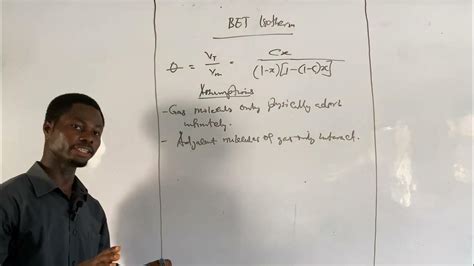 BET Isotherm
θ = V_T / V_m = Cx / (1-x)[1-(1-C)x]
Assumptions
- Gas molecules only physically adsorb
infinitely.
- Adjacent molecules of gas only interact.